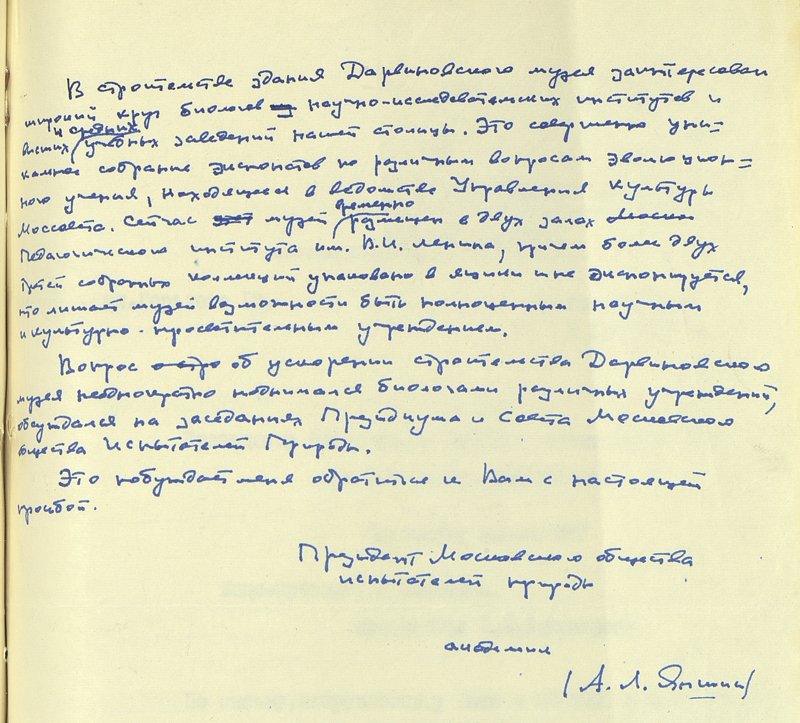 В строительстве здания Дарвиновского музея заинтересован
широкий круг биологов научно-исследовательских институтов и
высших и средних учебных заведений нашей столицы. Это совершенно уни-
кальное собрание экспонатов по различным вопросам эволюцион-
ного учения, находящееся в ведомстве Управления культуры
Моссовета. Сейчас музей временно размещен в двух залах
Педагогического института им. В.И. Ленина, причем более двух
третей собранных коллекций упаковано в ящики и не экспонируется,
что лишает музей возможности быть полноценным научным
и культурно-просветительным учреждением.
Вопрос об ускорении строительства Дарвиновского
музея неоднократно поднимался биологами различных учреждений,
обсуждался на заседаниях Президиума и Совета Московского
общества Испытателей Природы.
Это побуждает меня обратиться к Вам с настоящей
просьбой.
Президент Московского общества
испытателей природы
академик
(А. Л. Яншин)